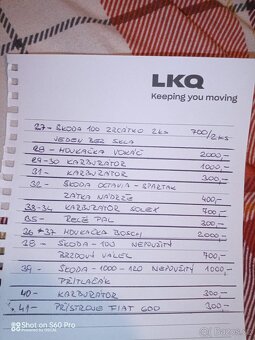 LKQ
Keeping you moving
27- ŠKODA 100 ZRCÁTKO 2KS 700/2KS
JEDEN BEZ SKLA
28- HOUKAČKA VOKÁČ 2000,-
29-30 KARBURÁTOR 1000,-
31- KARBURÁTOR 300,-
32- ŠKODA OCTAVIA - SPARTAK
ZÁTKA NÁDRŽE 400,-
33-34 KARBURÁTOR SOLEX 700,-
35- RELÉ PAL 300,-
36 37 HOUKAČKA BOSCH 2000,-
38- ŠKODA-100 NEPOUŽITÝ
BRZDOVÝ VÁLEC 700,-
39- ŠKODA-1000-120 NEPOUŽITÝ 1000,-
PŘÍTLAČÁK
40- KARBURÁTOR 300,-
41- PŘÍSTROJE FIAT 600 300,-
Shot on S60 Pro